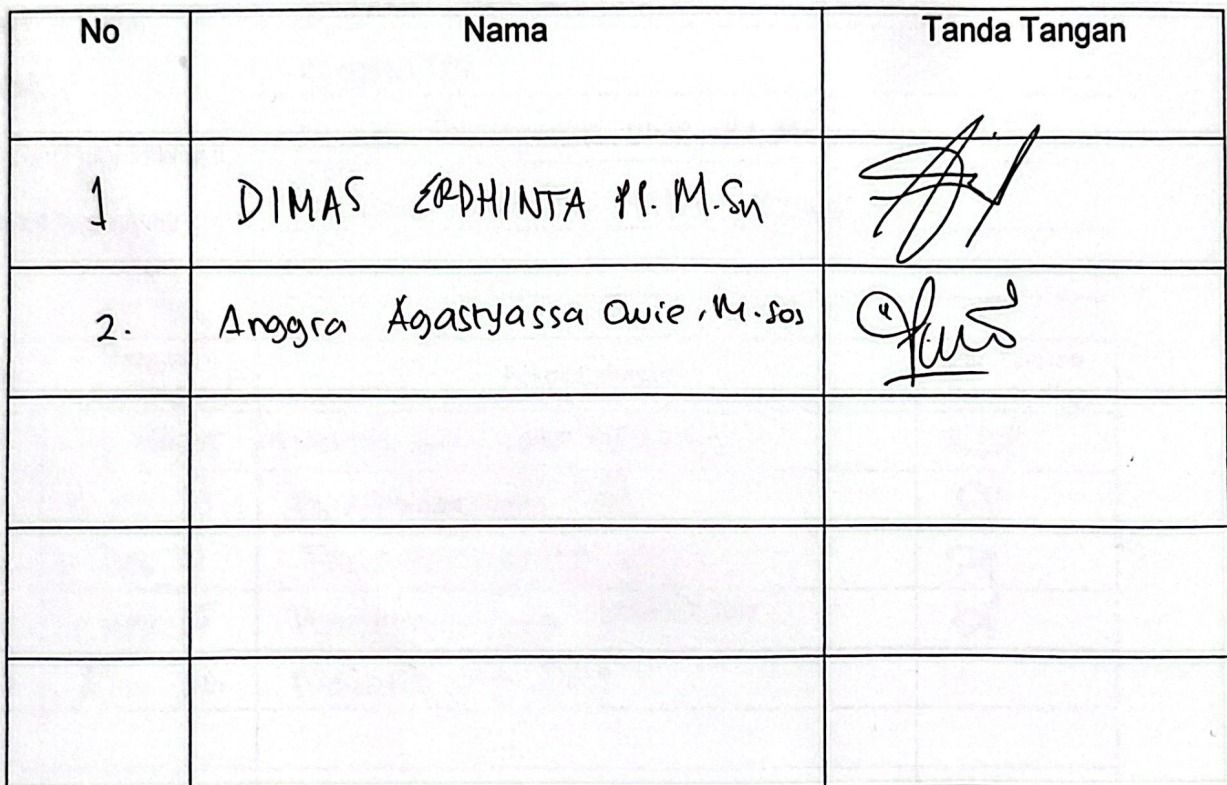 No Nama Tanda Tangan
1 DIMAS ERDHINTA PP. M.Sn
2. Anggra Agastyassa Owie, M.Sos